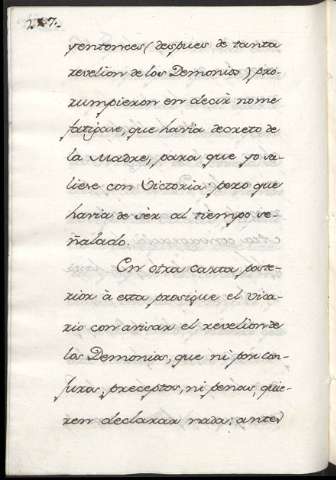 227.
y entonces (despues de tanta
revelion de los Demonios) pro-
rumpieron en decir no me
fatigase, que havia decreto de
la Madre, para que yo sa-
liese con Victoria: pero que
havia de ser al tiempo se-
ñalado.
En otra carta poste-
rior à esta prosigue el Vica-
rio con avisar el revelion de
los Demonios, que ni por con-
juros, preceptos, ni penas, quie-
ren declarar nada; antes